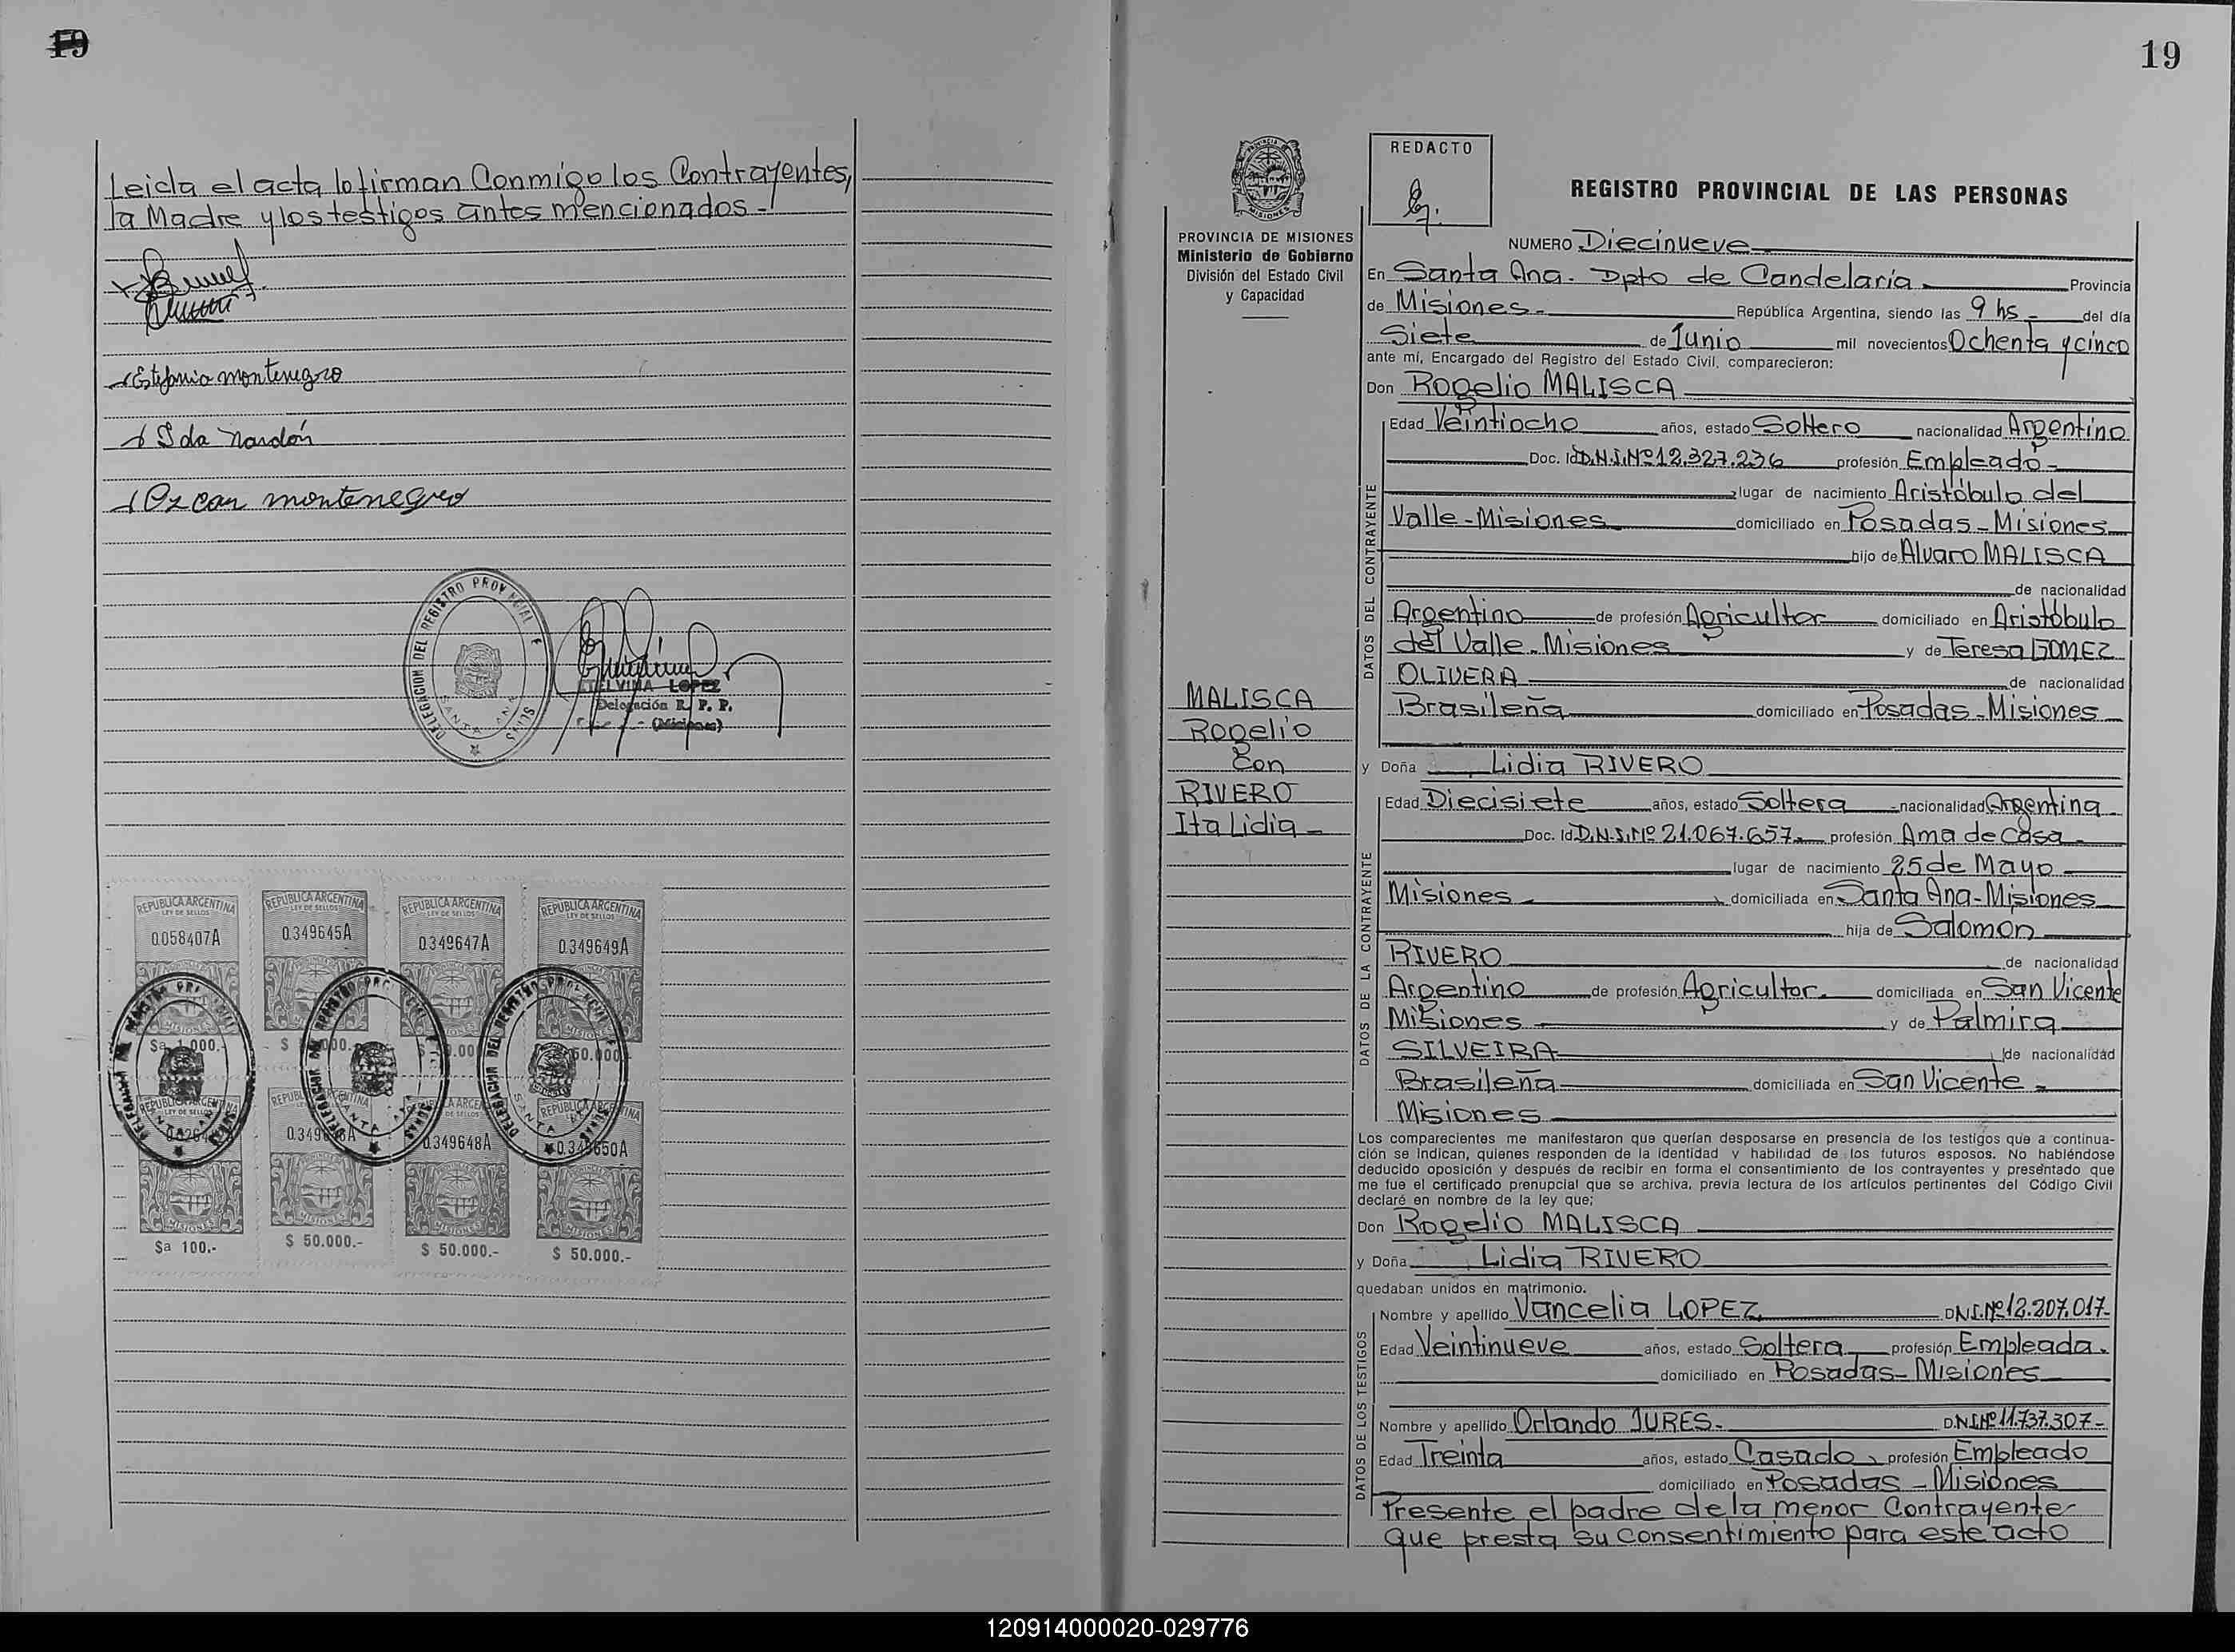 19
Leida el acta lo firman Conmigo los Contrayentes,
la Madre y los testigos antes mencionados -
Estefania montenegro
Ida Nardón
Ozcar montenegro
DELEGACION DEL REGISTRO PROVINCIAL
SANTA ANA
ETELVINA LOPEZ
Delegación R. P. P.
(Misiones)
REPUBLICA ARGENTINA
LEY DE SELLOS
0.058407A
REPUBLICA ARGENTINA
LEY DE SELLOS
0.349645A
REPUBLICA ARGENTINA
LEY DE SELLOS
0.349647A
REPUBLICA ARGENTINA
LEY DE SELLOS
0.349649A
MISIONES
$a 1.000.-
0.349648A
0.349650A
MISIONES
$a 100.-
$ 50.000.-
$ 50.000.-
$ 50.000.-
19
PROVINCIA DE MISIONES
Ministerio de Gobierno
División del Estado Civil
y Capacidad
REDACTO
REGISTRO PROVINCIAL DE LAS PERSONAS
NUMERO Diecinueve
En Santa Ana. Dpto de Candelaria Provincia
de Misiones República Argentina, siendo las 9 hs del día
Siete de Junio mil novecientos Ochenta y cinco
ante mí, Encargado del Registro del Estado Civil, comparecieron:
Don Rogelio MALISCA
DATOS DEL CONTRAYENTE
Edad Veintiocho años, estado Soltero nacionalidad Argentino
Doc. Id D.N.I. Nº 12.327.236 profesión Empleado
lugar de nacimiento Aristóbulo del
Valle - Misiones domiciliado en Posadas - Misiones
hijo de Alvaro MALISCA
de nacionalidad
Argentino de profesión Agricultor domiciliado en Aristóbulo
del Valle - Misiones y de Teresa GOMEZ
OLIVERA de nacionalidad
Brasileña domiciliado en Posadas - Misiones
MALISCA
Rogelio
Con
RIVERO
Ita Lidia -
y Doña Lidia RIVERO
DATOS DE LA CONTRAYENTE
Edad Diecisiete años, estado Soltera nacionalidad Argentina
Doc. Id D.N.I. Nº 21.067.657 profesión Ama de casa
lugar de nacimiento 25 de Mayo
Misiones domiciliada en Santa Ana - Misiones
hija de Salomon
RIVERO de nacionalidad
Argentino de profesión Agricultor domiciliada en San Vicente
Misiones y de Palmira
SILVEIRA de nacionalidad
Brasileña domiciliada en San Vicente -
Misiones
Los comparecientes me manifestaron que querían desposarse en presencia de los testigos que a continua-
ción se indican, quienes responden de la identidad y habilidad de los futuros esposos. No habiéndose
deducido oposición y después de recibir en forma el consentimiento de los contrayentes y presentado que
me fue el certificado prenupcial que se archiva, previa lectura de los artículos pertinentes del Código Civil
declaré en nombre de la ley que;
Don Rogelio MALISCA
y Doña Lidia RIVERO
quedaban unidos en matrimonio.
DATOS DE LOS TESTIGOS
Nombre y apellido Vancelia LOPEZ D.N.I. Nº 12.207.017-
Edad Veintinueve años, estado Soltera profesión Empleada
domiciliado en Posadas - Misiones
Nombre y apellido Orlando JURES - D.N.I. Nº 11.737.307 -
Edad Treinta años, estado Casado profesión Empleado
domiciliado en Posadas - Misiones
Presente el padre de la menor Contrayente
que presta su consentimiento para este acto
120914000020-029776